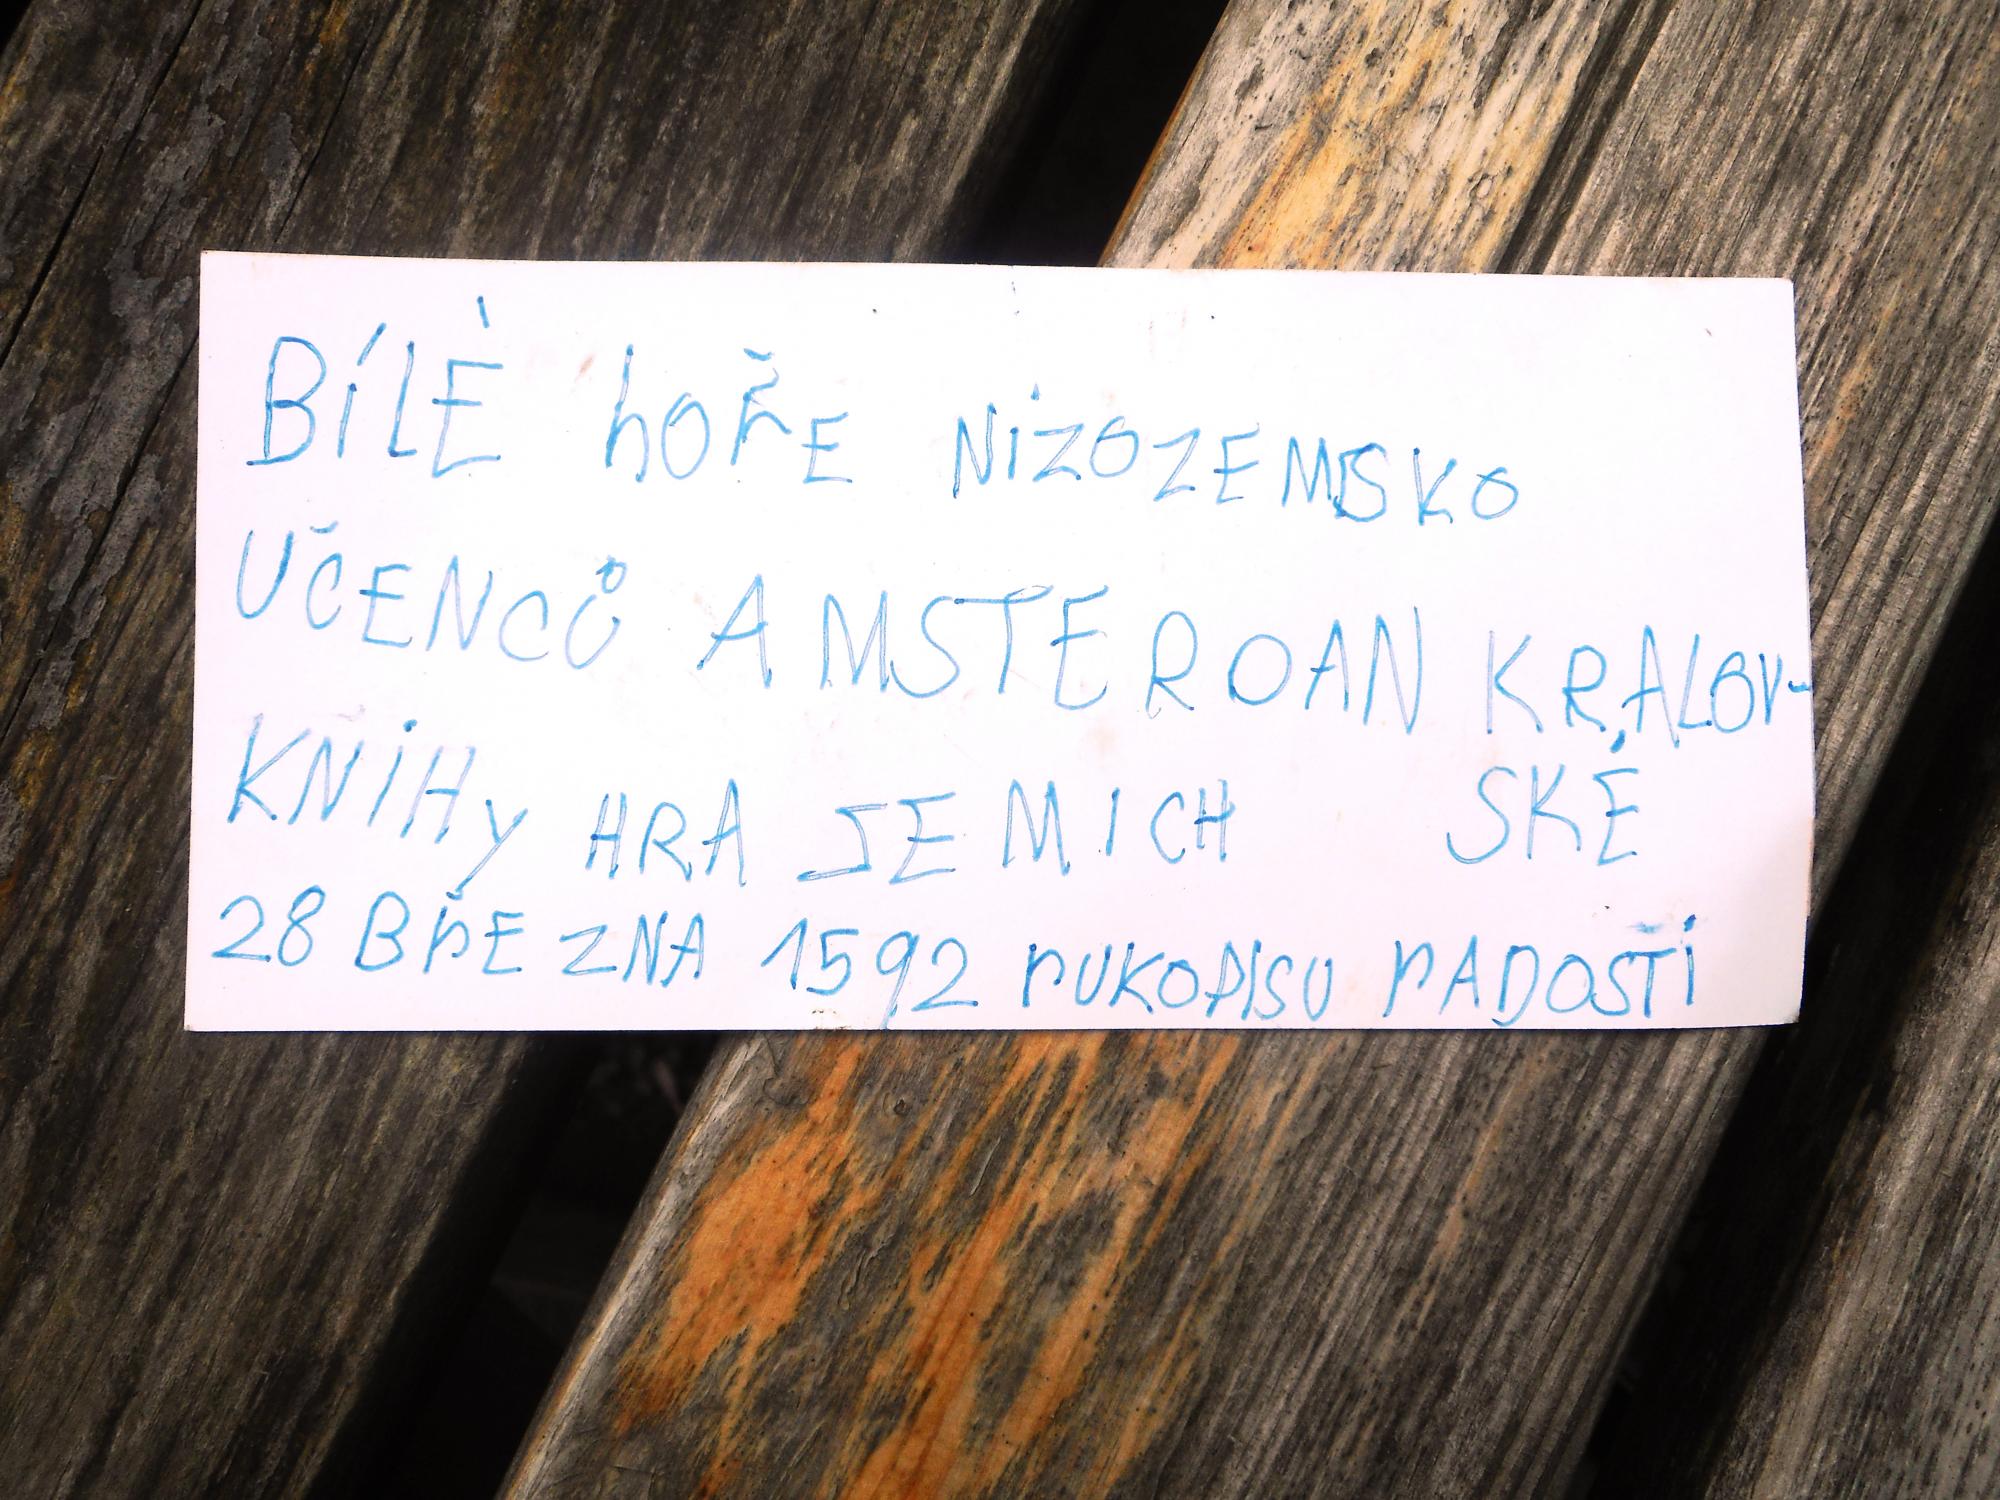 BÍLÉ hOŘE NIZOZEMSKO
UČENCŮ AMSTERDAN KRALOV-
SKÉ
KNIHY HRA SE MICH
28 BŘEZNA 1592 RUKOPISU RADOSTI